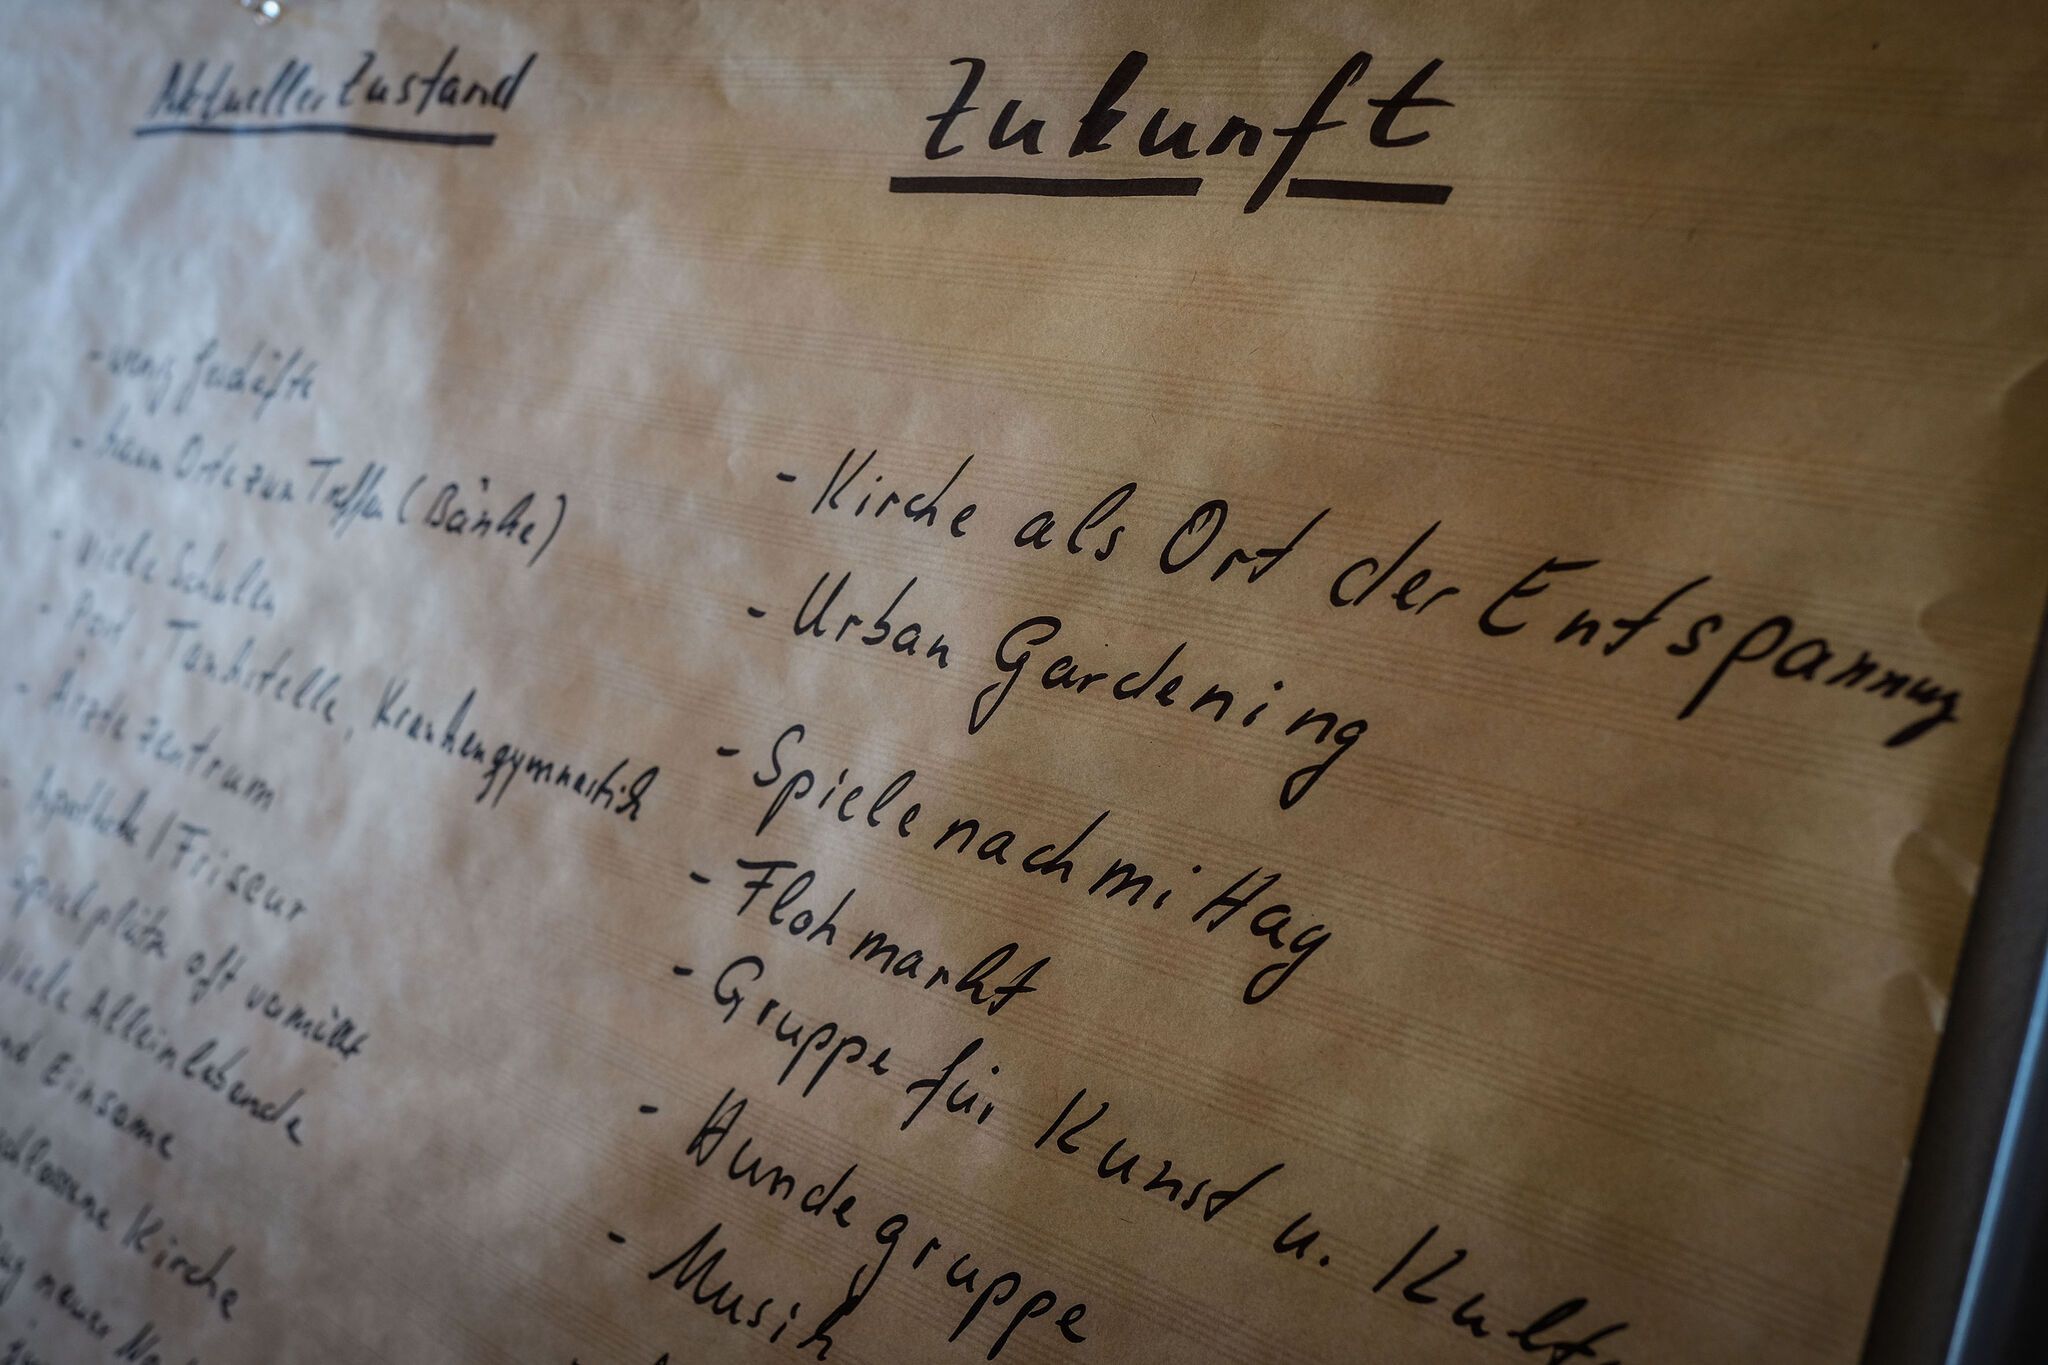 Aktueller Zustand
- wenig Geschäfte
- kaum Orte zum Treffen (Bänke)
- viele Schulen
- Post, Tankstelle, Krankengymnastik
- Ärztezentrum
- Apotheke / Friseur
Spielplätze oft vermüllt
Viele Alleinlebende
und Einsame
Kirche
neuer
Zukunft
- Kirche als Ort der Entspannung
- Urban Gardening
- Spielenachmittag
- Flohmarkt
- Gruppe für Kunst u.
- Hundegruppe
- Musik